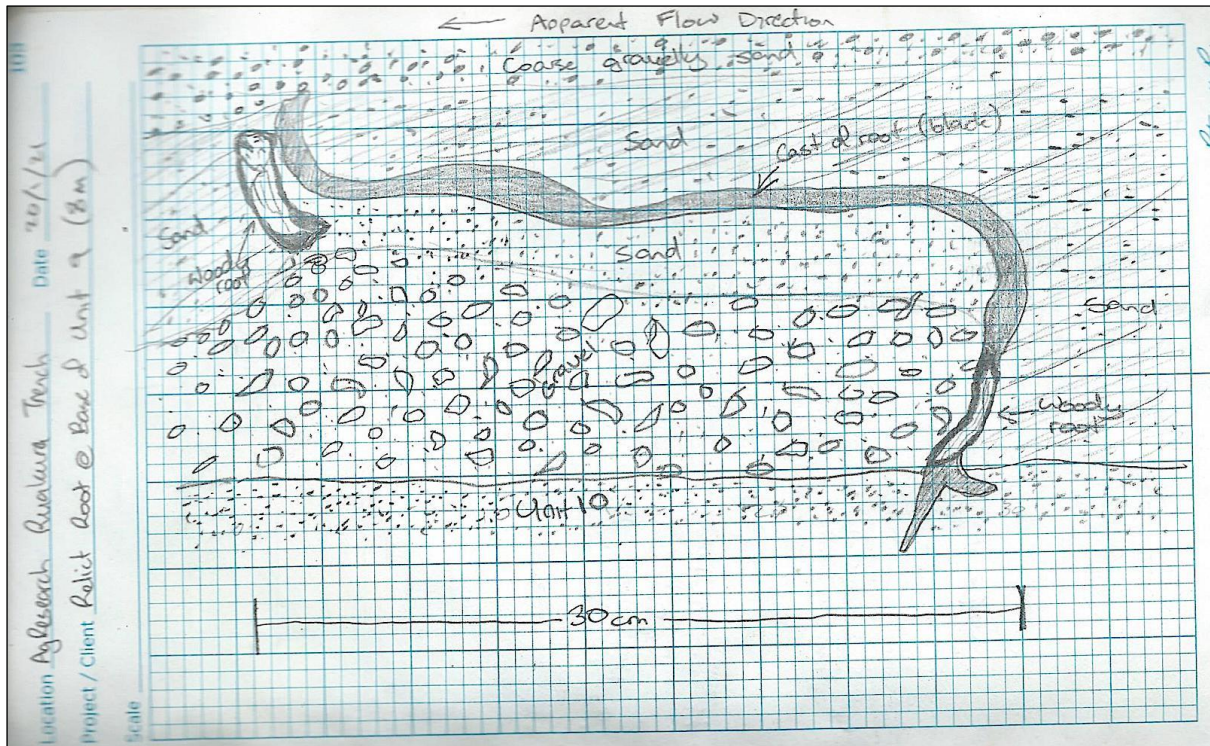 ← Apparent Flow Direction
Coarse gravelly sand
Sand
Cast of root (black)
Sand
Woody
root
Sand
Sand
Gravel
Woody
root
Unit 10
30cm
Location AgResearch Ruakura Trench Date 20/1/21
Project / Client Relict Root @ Base of Unit 9 (8m)
Scale